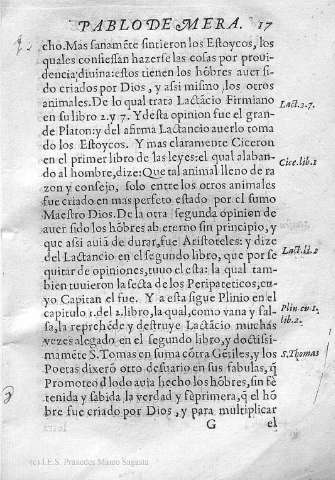 PABLO DE MERA. 17
cho. Mas sanamẽte sintieron los Estoycos, los
quales confiessan hazerse las cosas por proui-
dencia diuina: estos tienen los hõbres auer si-
do criados por Dios, y assi mismo, los otros
animales. De lo qual trata Lactãcio Firmiano
en su libro 2. y 7. Y desta opinion fue el gran-
de Platon: y del afirma Lactancio auerlo toma
do los Estoycos. Y mas claramente Ciceron
en el primer libro de las leyes: el qual alaban-
do al hombre, dize: Que tal animal lleno de ra
zon y consejo, solo entre los otros animales
fue criado en mas perfeto estado por el sumo
Maestro Dios. De la otra segunda opinion de
auer sido los hõbres ab eterno sin principio, y
que assi auiã de durar, fue Aristoteles: y dize
del Lactancio en el segundo libro, que por se
quitar de opiniones, tuuo esta: la qual tam-
bien tuuieron la secta de los Peripateticos, cu-
yo Capitan el fue. Y a esta sigue Plinio en el
capitulo 1. del 2. libro, la qual, como vana y fal-
sa, la reprehẽde y destruye Lactãcio muchas
vezes alegado en el segundo libro, y doctissi-
mamẽte S. Tomas en suma cõtra Gẽtiles, y los
Poetas dixerõ otro desuario en sus fabulas, q̃
Promoteo đ lodo auia hecho los hõbres, sin sẽ
tenida y sabida la verdad y sẽprimera, q̃ el hõ
bre fue criado por Dios, y para multiplicar
G el
Lact. 2. 7.
Cice. lib. 1
Lact. li. 2
Plin cu 1.
lib. 2.
S. Thomas
(c) I.E.S. Praxedes Mateo Sagasta